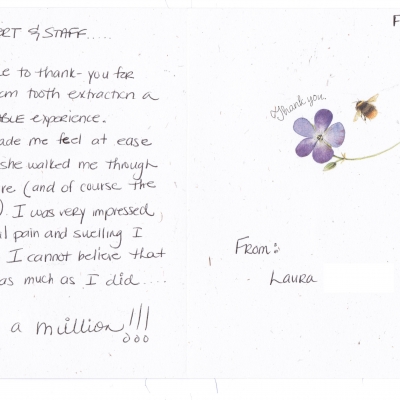 ORT & STAFF.....
e to thank-you for
om tooth extraction a
ABLE experience.
ade me feel at ease
she walked me through
re (and of course the
). I was very impressed
l pain and swelling I
I cannot believe that
as much as I did.....
a million!!!
F
Thank you
From:
Laura